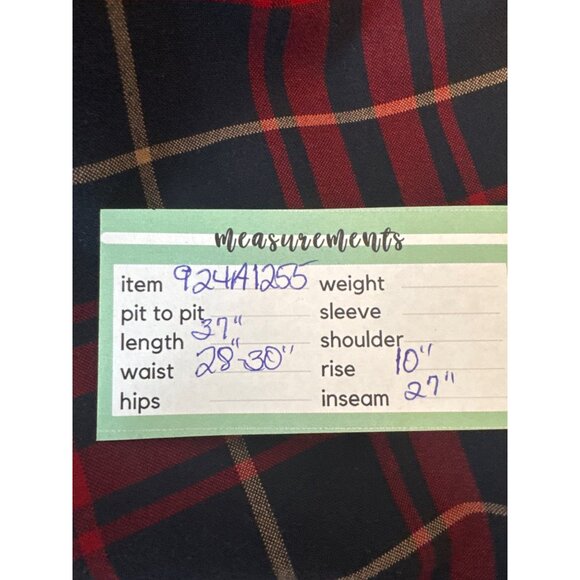 measurements
item 924A1255
pit to pit
length 37"
waist 28"-30"
hips
weight
sleeve
shoulder
rise 10"
inseam 27"